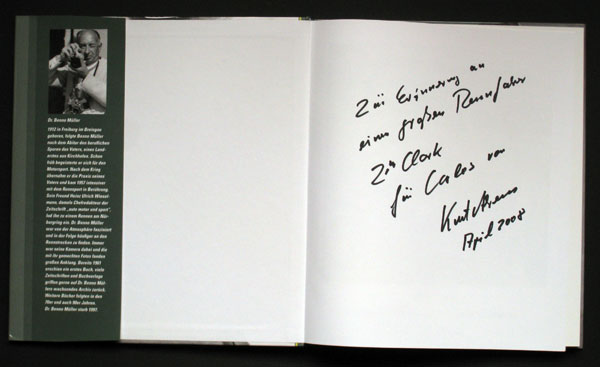 Dr. Benno Müller
1912 in Freiburg im Breisgau
geboren, folgte Benno Müller
nach dem Abitur den beruflichen
Spuren des Vaters, eines Land-
arztes von Kirchhofen. Schon
früh begeisterte er sich für den
Motorsport. Nach dem Krieg
übernahm er die Praxis seines
Vaters und kam 1957 intensiver
mit dem Rennsport in Berührung.
Sein Freund Heinz Ulrich Wiesel-
mann, damals Chefredakteur der
Zeitschrift „auto motor und sport",
lud ihn zu einem Rennen am Nür-
burgring ein. Dr. Benno Müller
war von der Atmosphäre fasziniert
und in der Folge häufiger an den
Rennstrecken zu finden. Immer
war seine Kamera dabei und die
mit ihr gemachten Fotos fanden
großen Anklang. Bereits 1961
erschien ein erstes Buch, viele
Zeitschriften und Buchverlage
griffen gerne auf Dr. Benno Mül-
lers wachsendes Archiv zurück.
Weitere Bücher folgten in den
60er und auch 80er Jahren.
Dr. Benno Müller starb 1997.
Zur Erinnerung an
einen großen Rennfahrer
Jim Clark
für Carlos von
Kurt Ahrens
April 2008